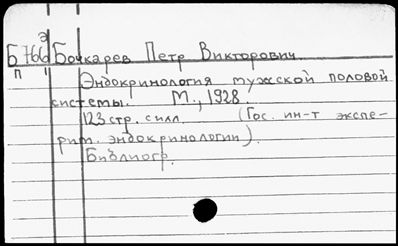 Э
Б766 Бочкарев Петр Викторович.
П II
Эндокринология мужской половой
системы. М., 1928.
123 стр. с илл. (Гос. ин-т экспе-
рим. эндокринологии).
Библиогр.